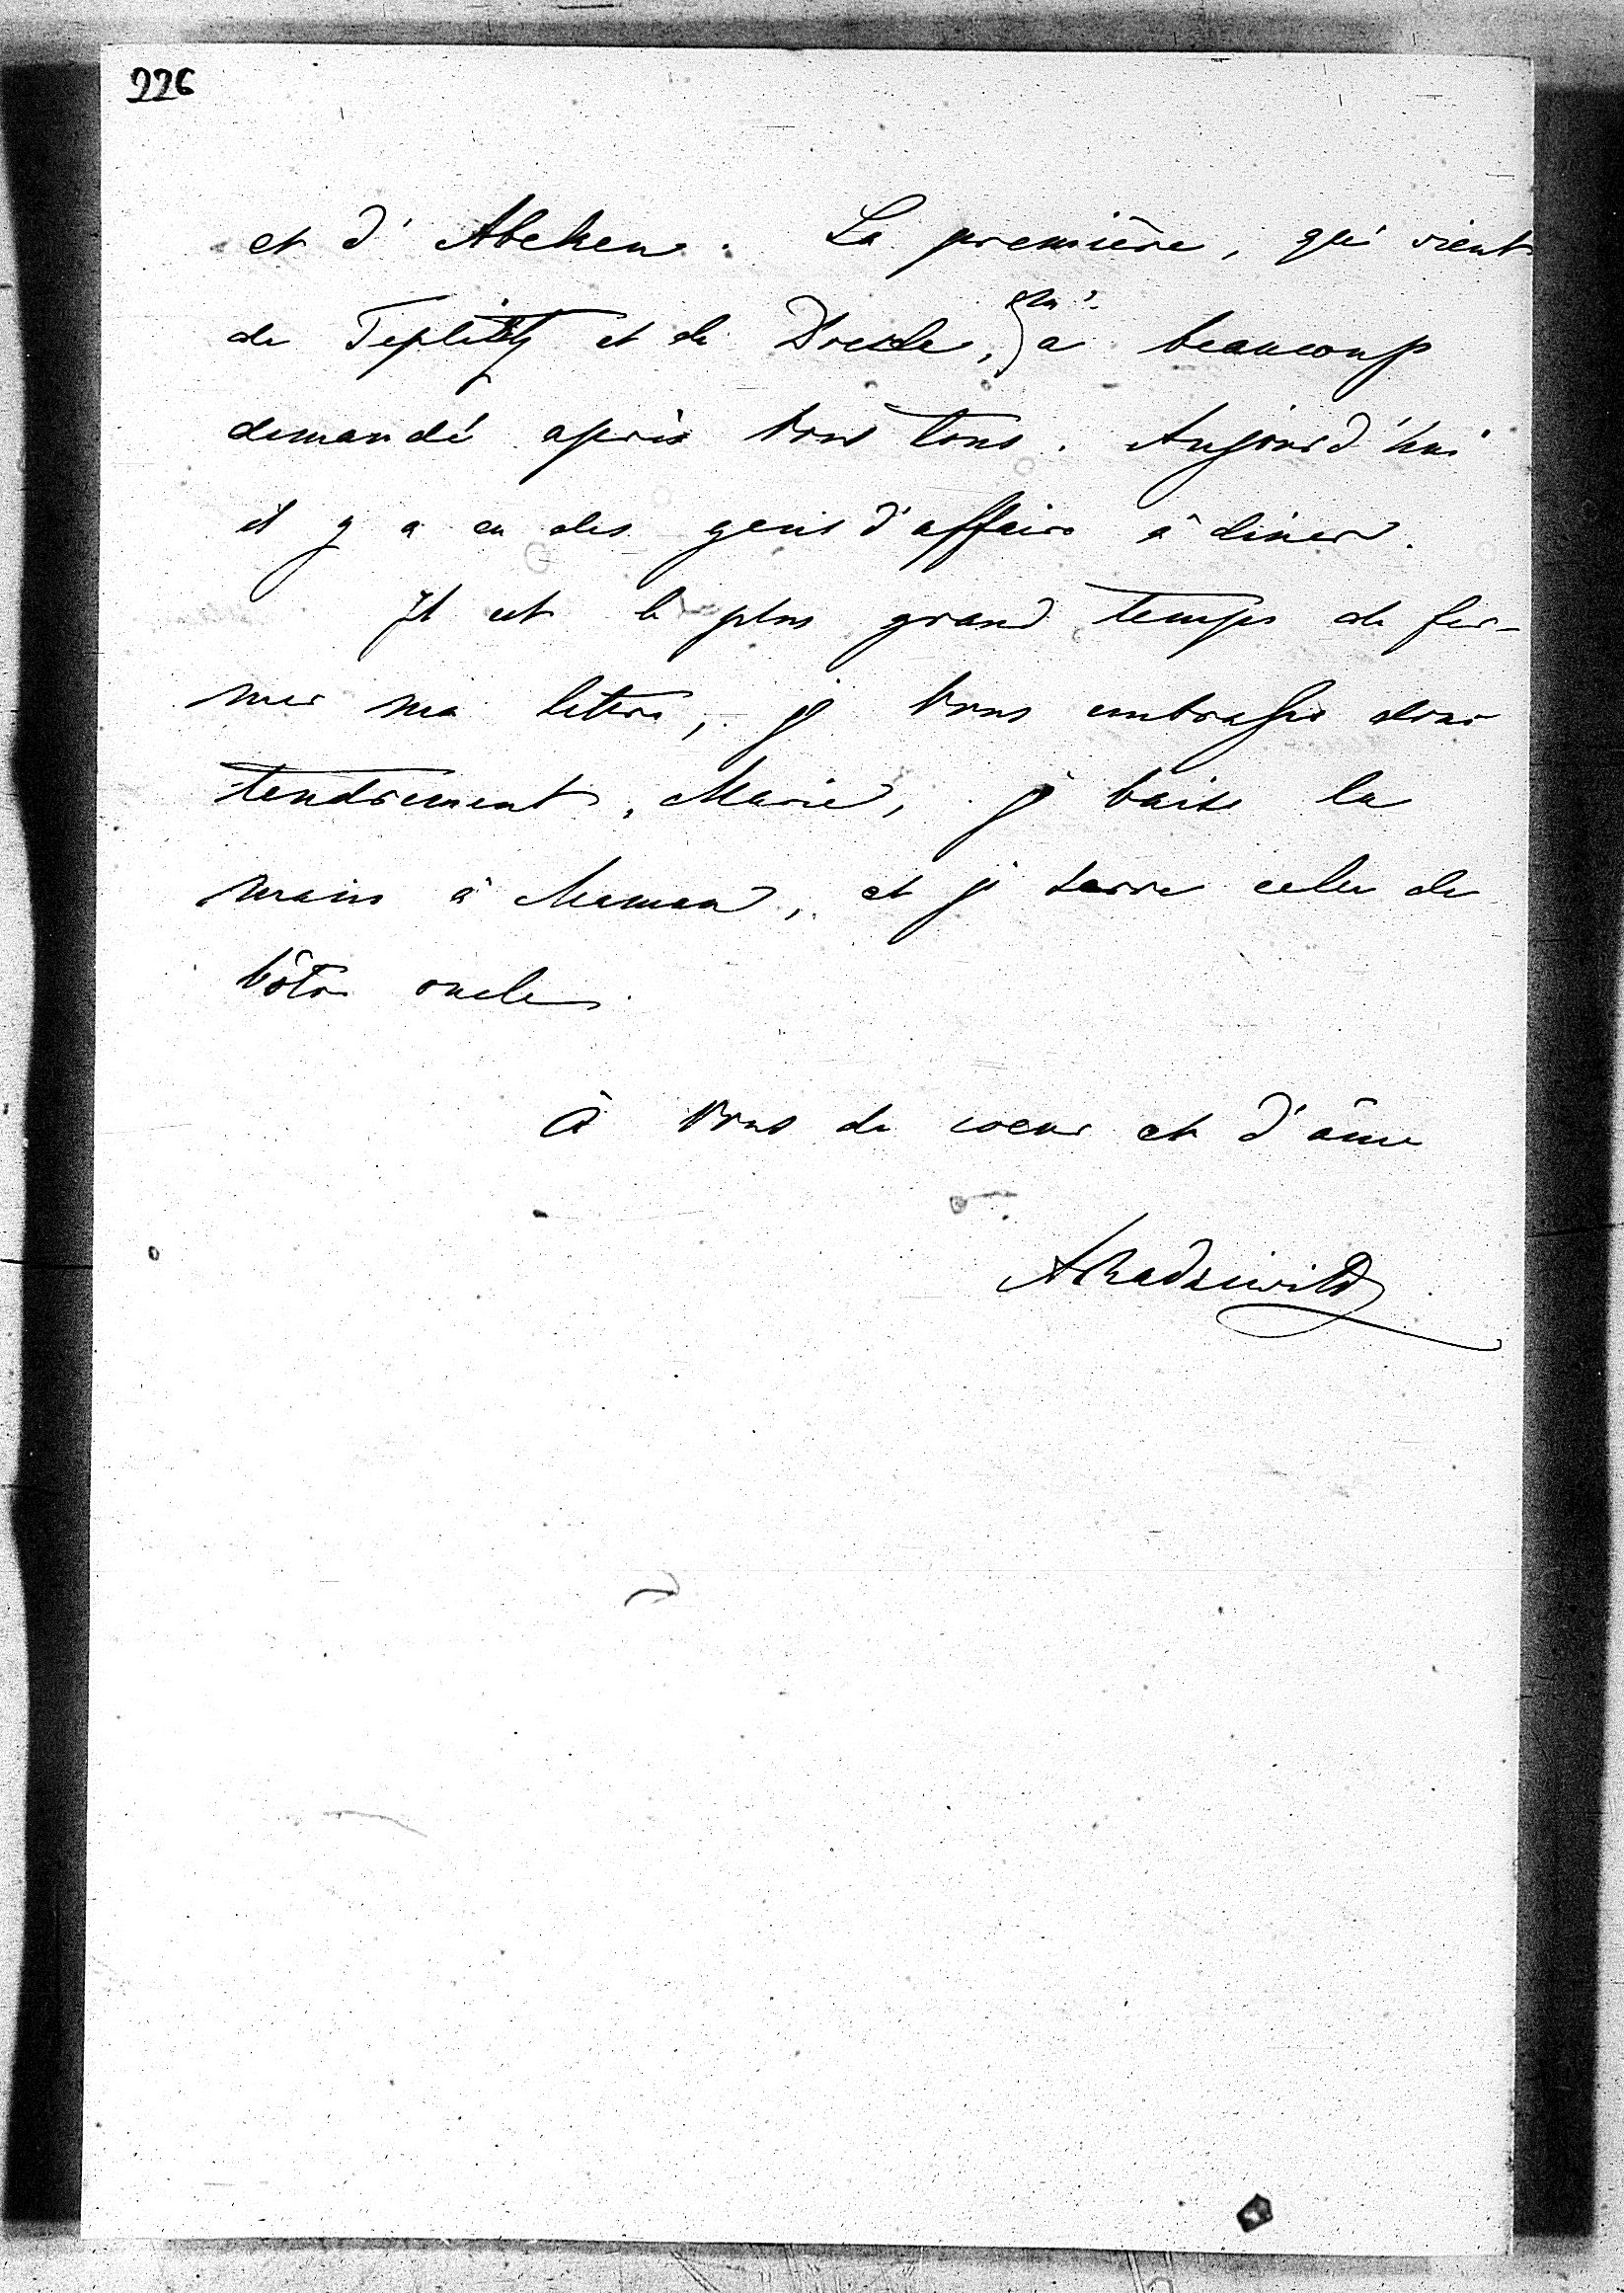 226
et d'Abeken. La première, qui vient
de Teplitz et de Dresde, m'a beaucoup
demandé après Vous tous. Aujourd'hui
il y a eu des gens d'affaires à diner.
Il est le plus grand temps de fer-
mer ma lettre, je Vous embrasse donc
tendrement, Marie, je baise la
main à Maman, et je serre celle de
Vôtre oncle.
à Vous de coeur et d'âme
ARadziwill